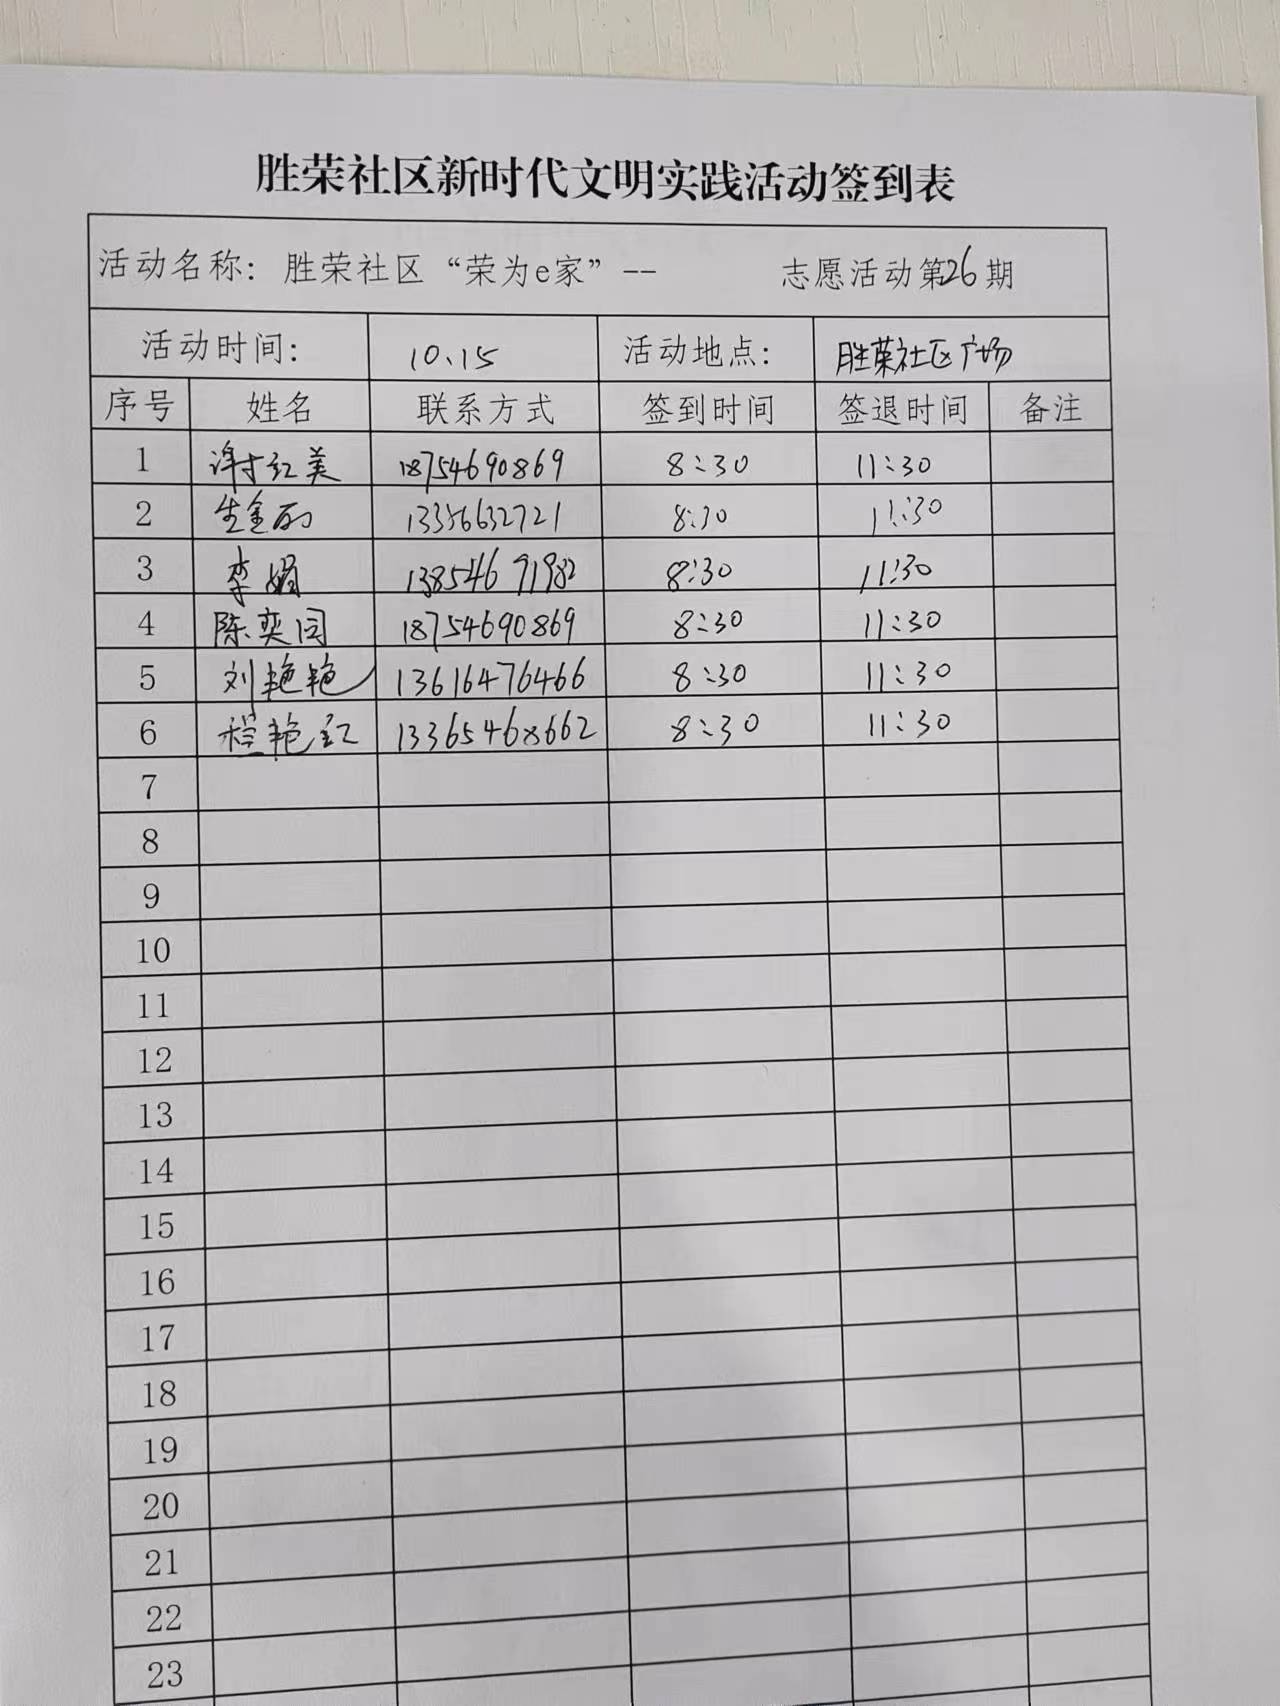 胜荣社区新时代文明实践活动签到表
活动名称：胜荣社区“荣为e家”-- 志愿活动第26期
活动时间： 10、15 活动地点： 胜荣社区广场
序号 姓名 联系方式 签到时间 签退时间 备注
1 谢红美 18754690869 8:30 11:30
2 生金 8:30 11:30
3 李娟 13854691982 8:30 11:30
4 陈奕同 18754690869 8:30 11:30
5 刘艳艳 13616476466 8:30 11:30
6 程艳红 13365468662 8:30 11:30
7
8
9
10
11
12
13
14
15
16
17
18
19
20
21
22
23